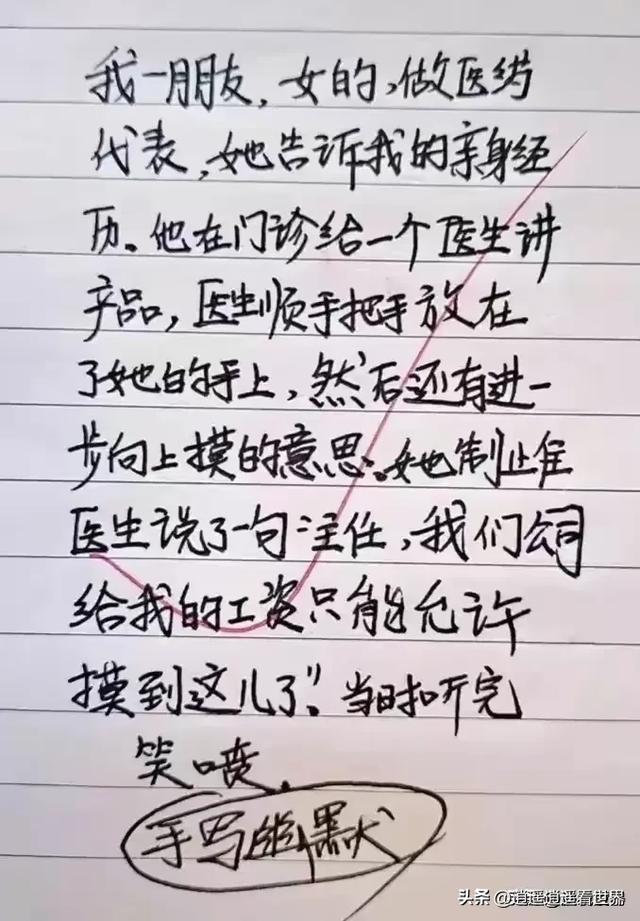 我一朋友,女的,做医药
代表,她告诉我的亲身经
历。他在门诊给一个医生讲
产品,医生顺手把手放在
了她的手上,然后还有进一
步向上摸的意思。她制止住
医生说了一句主任,我们公司
给我的工资只能允许
摸到这儿了"。当时听完
笑喷.
手写幽默
头条 @逍遥逍遥看世界